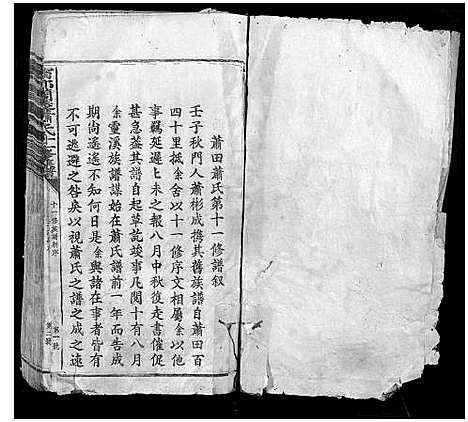 蕭田蕭氏第十一修譜叙
壬子秋門人蕭彬成携其舊族譜自蕭田百
四十里抵余舍以十一修序文相屬余以他
事羈延遲上未之報八月中秋復走書催促
甚急蓋其譜自起草訖竣事凡閱十有八月
余靈溪族譜謀始在蕭氏譜前一年而告成
期尚遙遙不知何日是余與諸在事者皆有
不可逃避之咎矣以視蕭氏之譜之成之速
十一修族譜新序